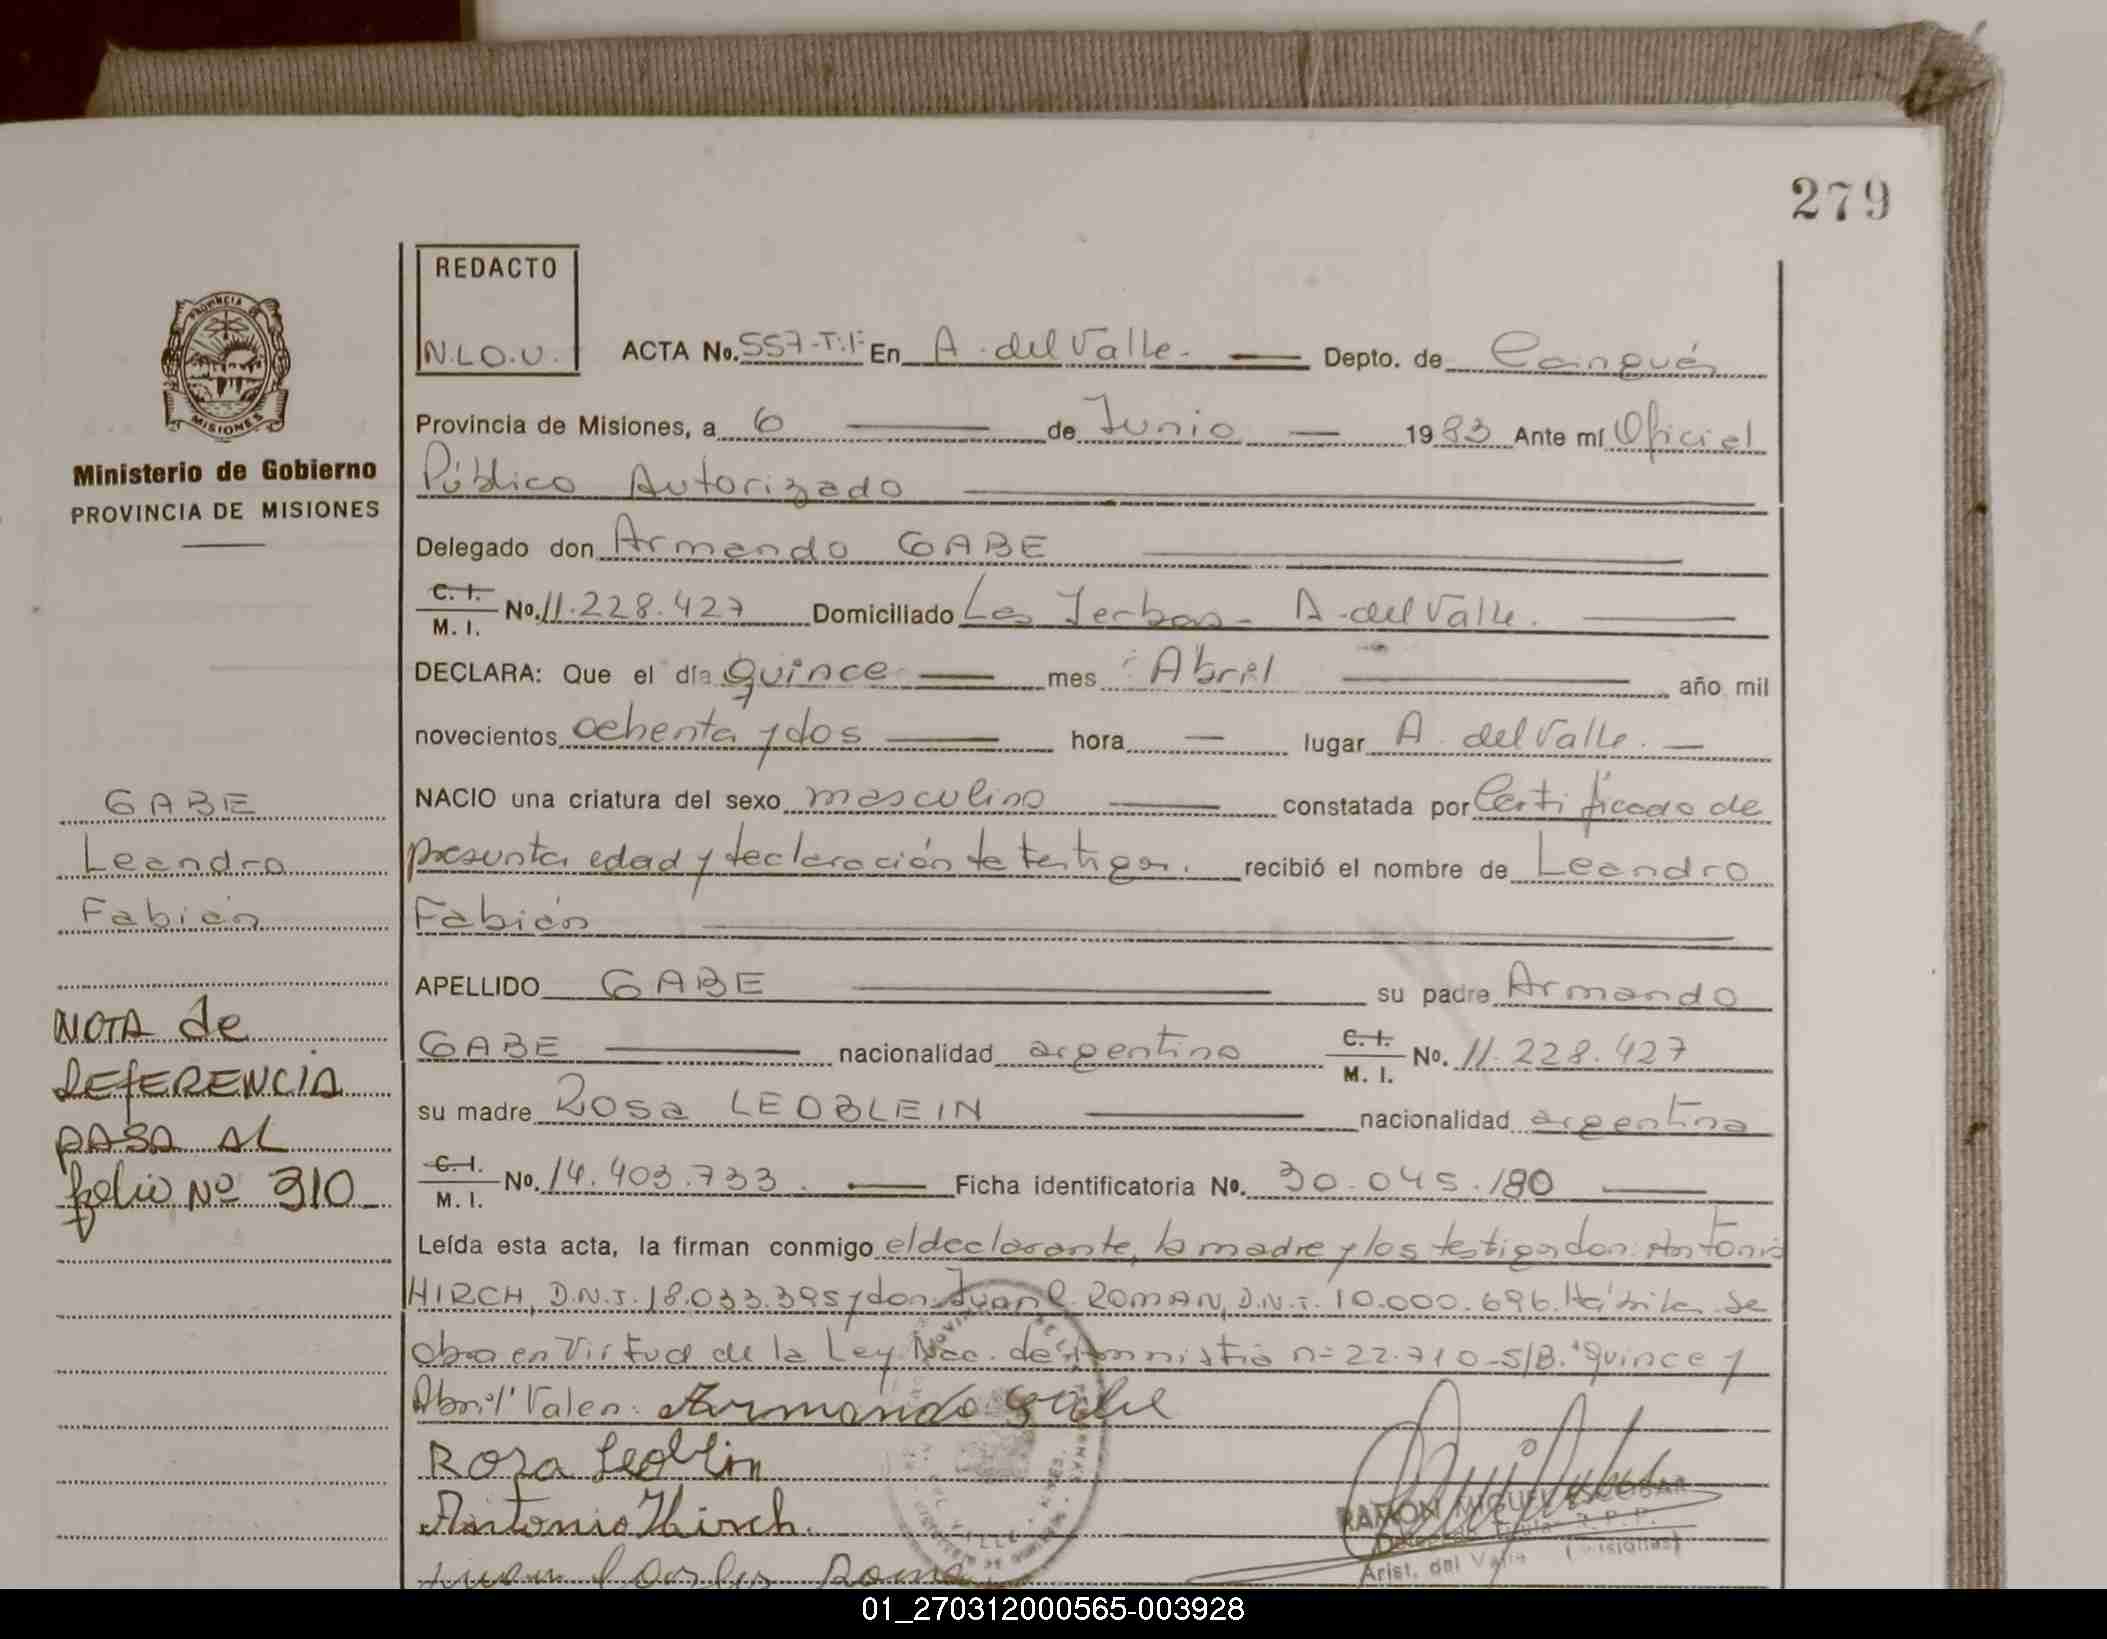 279
REDACTO
N.L.O.U.
ACTA No. 557-T.I- En A. del Valle. Depto. de Canguás
Provincia de Misiones, a 6 de Junio 1983 Ante mí Oficial
Público Autorizado
Delegado don Armando GABE
C. I.
M. I. No. 11.228.427 Domiciliado Las Yerbas - A. del Valle.
DECLARA: Que el día quince mes Abril año mil
novecientos ochenta y dos hora lugar A. del Valle.
NACIO una criatura del sexo masculino constatada por Certificado de
presunta edad y declaración de testigos. recibió el nombre de Leandro
Fabián
APELLIDO GABE su padre Armando
GABE nacionalidad argentina C. I. M. I. No. 11.228.427
su madre Rosa LEOBLEIN nacionalidad argentina
C. I.
M. I. No. 14.403.733. Ficha identificatoria No. 30.045.180
Leída esta acta, la firman conmigo el declarante, la madre y los testigos don: Antonio
HIRCH, D.N.I. 18.033.395 y don Juan C. ROMAN, D.N.I. 10.000.696. se
obra en Virtud de la Ley Nac. de Amnistía n= 22.710-S/B. "quince y
Abril" Valen. Armando Gabe
Rosa Leoblin
Antonio Hirch.
Juan Carlos Roman
RAMON MIGUEL ESCOBAR
Arist. del Valle (Misiones)
PROVINCIA
MISIONES
Ministerio de Gobierno
PROVINCIA DE MISIONES
GABE
Leandro
Fabián
NOTA de
REFERENCIA
PASA AL
folio Nº 310
01_270312000565-003928